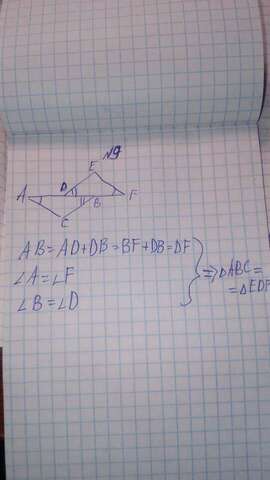 №9
E
D
A
B
F
C
AB=AD+DB=BF+DB=DF
∠A=∠F
∠B=∠D
⇒ΔABC=
=ΔEDF